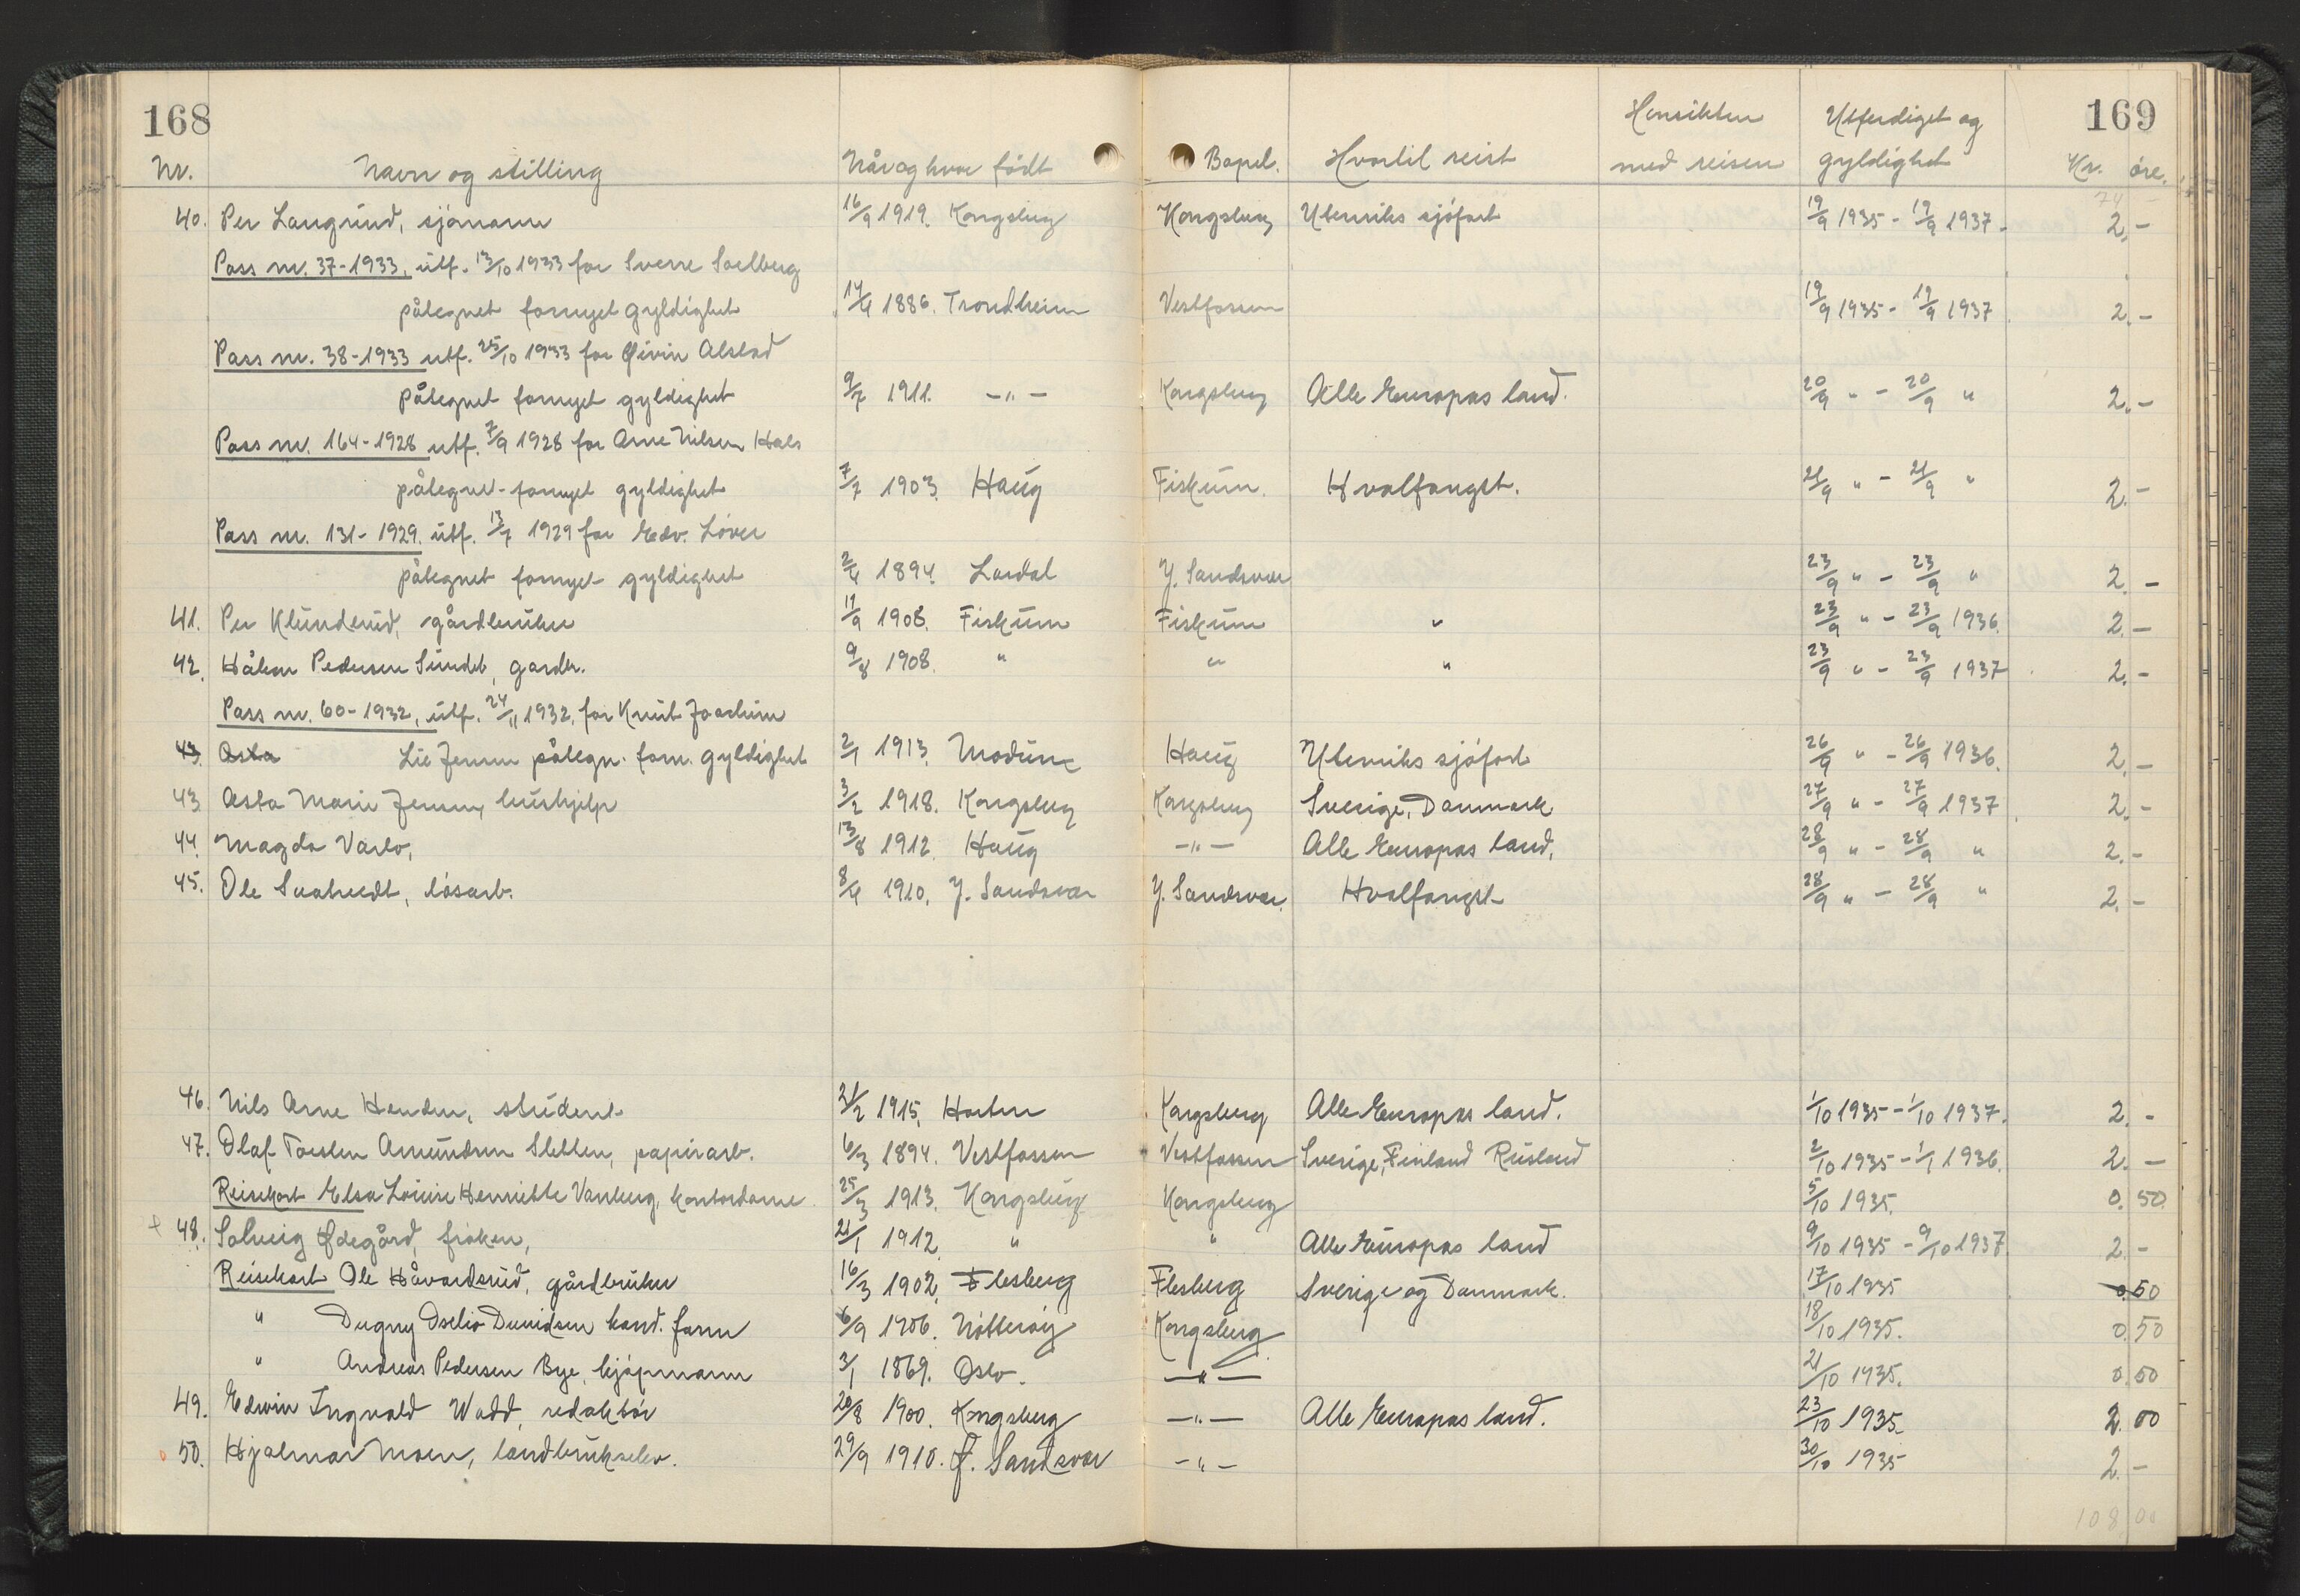 168
169
Nr. Navn og stilling Når og hvor født Bopel. Hvortil reist Hensikten med reisen Utferdiget og gyldighet Kr. øre.
74 -
40. Per Langrud, sjømann 16/9 1919. Kongsberg Kongsberg Utenriks sjøfart 19/9 1935 - 19/9 1937 - 2. -
Pass nr. 37-1933, utf. 13/10 1933 for Sverre Solberg
påtegnet fornyet gyldighet 14/4 1886. Trondheim Vestfossen 19/9 1935 - 19/9 1937 2. -
Pass nr. 38-1933 utf. 25/10 1933 for Øivin Alstad
påtegnet fornyet gyldighet 9/7 1911. -"- Kongsberg Alle Europas land. 20/9 " - 20/9 " 2. -
Pass nr. 164-1928 utf. 7/9 1928 for Arne Nilsen Hals
påtegnet fornyet gyldighet 7/7 1903. Haug Fiskum. Hvalfangst. 21/9 " - 21/9 " 2. -
Pass nr. 131-1929. utf. 13/7 1929 for Edv. Løver
påtegnet fornyet gyldighet 2/4 1894. Lardal Y. Sandsvær 23/9 " - 23/9 " 2. -
41. Per Klunderud, gårdbruker 11/9 1908. Fiskum Fiskum " 23/9 " - 23/9 1936. 2. -
42. Håkon Pedersen Sundet, gardbr. 9/8 1908. " " " 23/9 " - 23/9 1937 2. -
Pass nr. 60-1932, utf. 24/11 1932, for Knut Joachim
43. Asta Lie Jensen påtegn. forn. gyldighet 2/1 1913. Modum Haug Utenriks sjøfart 26/9 " - 26/9 1936. 2. -
43 Asta Marie Jensen, hushjelp 3/2 1918. Kongsberg Kongsberg Sverige, Danmark 27/9 " - 27/9 1937 2. -
44. Magda Varlo, 13/8 1912. Haug -"- Alle Europas land, 28/9 " - 28/9 " 2. -
45. Ole , løsarb. 8/4 1910. Y. Sandsvær Y. Sandsvær. Hvalfangst 28/9 " - 28/9 " 2. -
46. Nils Arne Henden, student 21/2 1915, Horten Kongsberg Alle Europas land. 1/10 1935 - 1/10 1937. 2. -
47. Olaf Torsten Amundsen Sletten, papirarb. 6/3 1894. Vestfossen Vestfossen Sverige, Finland Rusland 2/10 1935 - 1/1 1936. 2. -
Reisekort Elsa Louise Henriette Vanberg, kontordame 25/3 1913. Kongsberg Kongsberg 5/10 1935. 0. 50
+ 48. Solveig Ødegård, frøken, 21/1 1912. " " Alle Europas land 9/10 1935 - 9/10 1937 2. -
Reisekort Ole Håvardsrud, gårdbruker 16/3 1902. Flesberg Flesberg Sverige og Danmark. 17/10 1935 0.50
" Dagny Davidsen kand. farm 6/9 1906. Nøtterøy Kongsberg 18/10 1935. 0. 50
" Andreas Pedersen Bye, kjøpmann 3/1 1869. Oslo. -"- 21/10 1935. 0. 50
49. Edwin Ingvald Wadd, redaktør 20/8 1900. Kongsberg -"- Alle Europas land. 23/10 1935. 2. 00
50. Hjalmar Moen, landbrukselev. 29/9 1910. Ø. Sandsvær -"- 30/10 1935 2. -
108 00